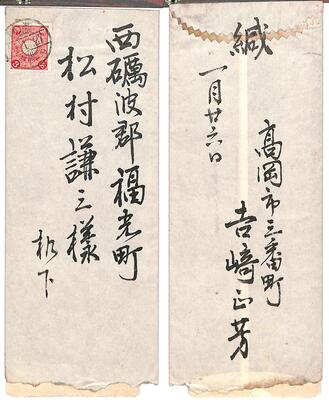 西礪波郡福光町
松村謙三様
机下
緘
一月廿六日
高岡市三番町
吉﨑正芳